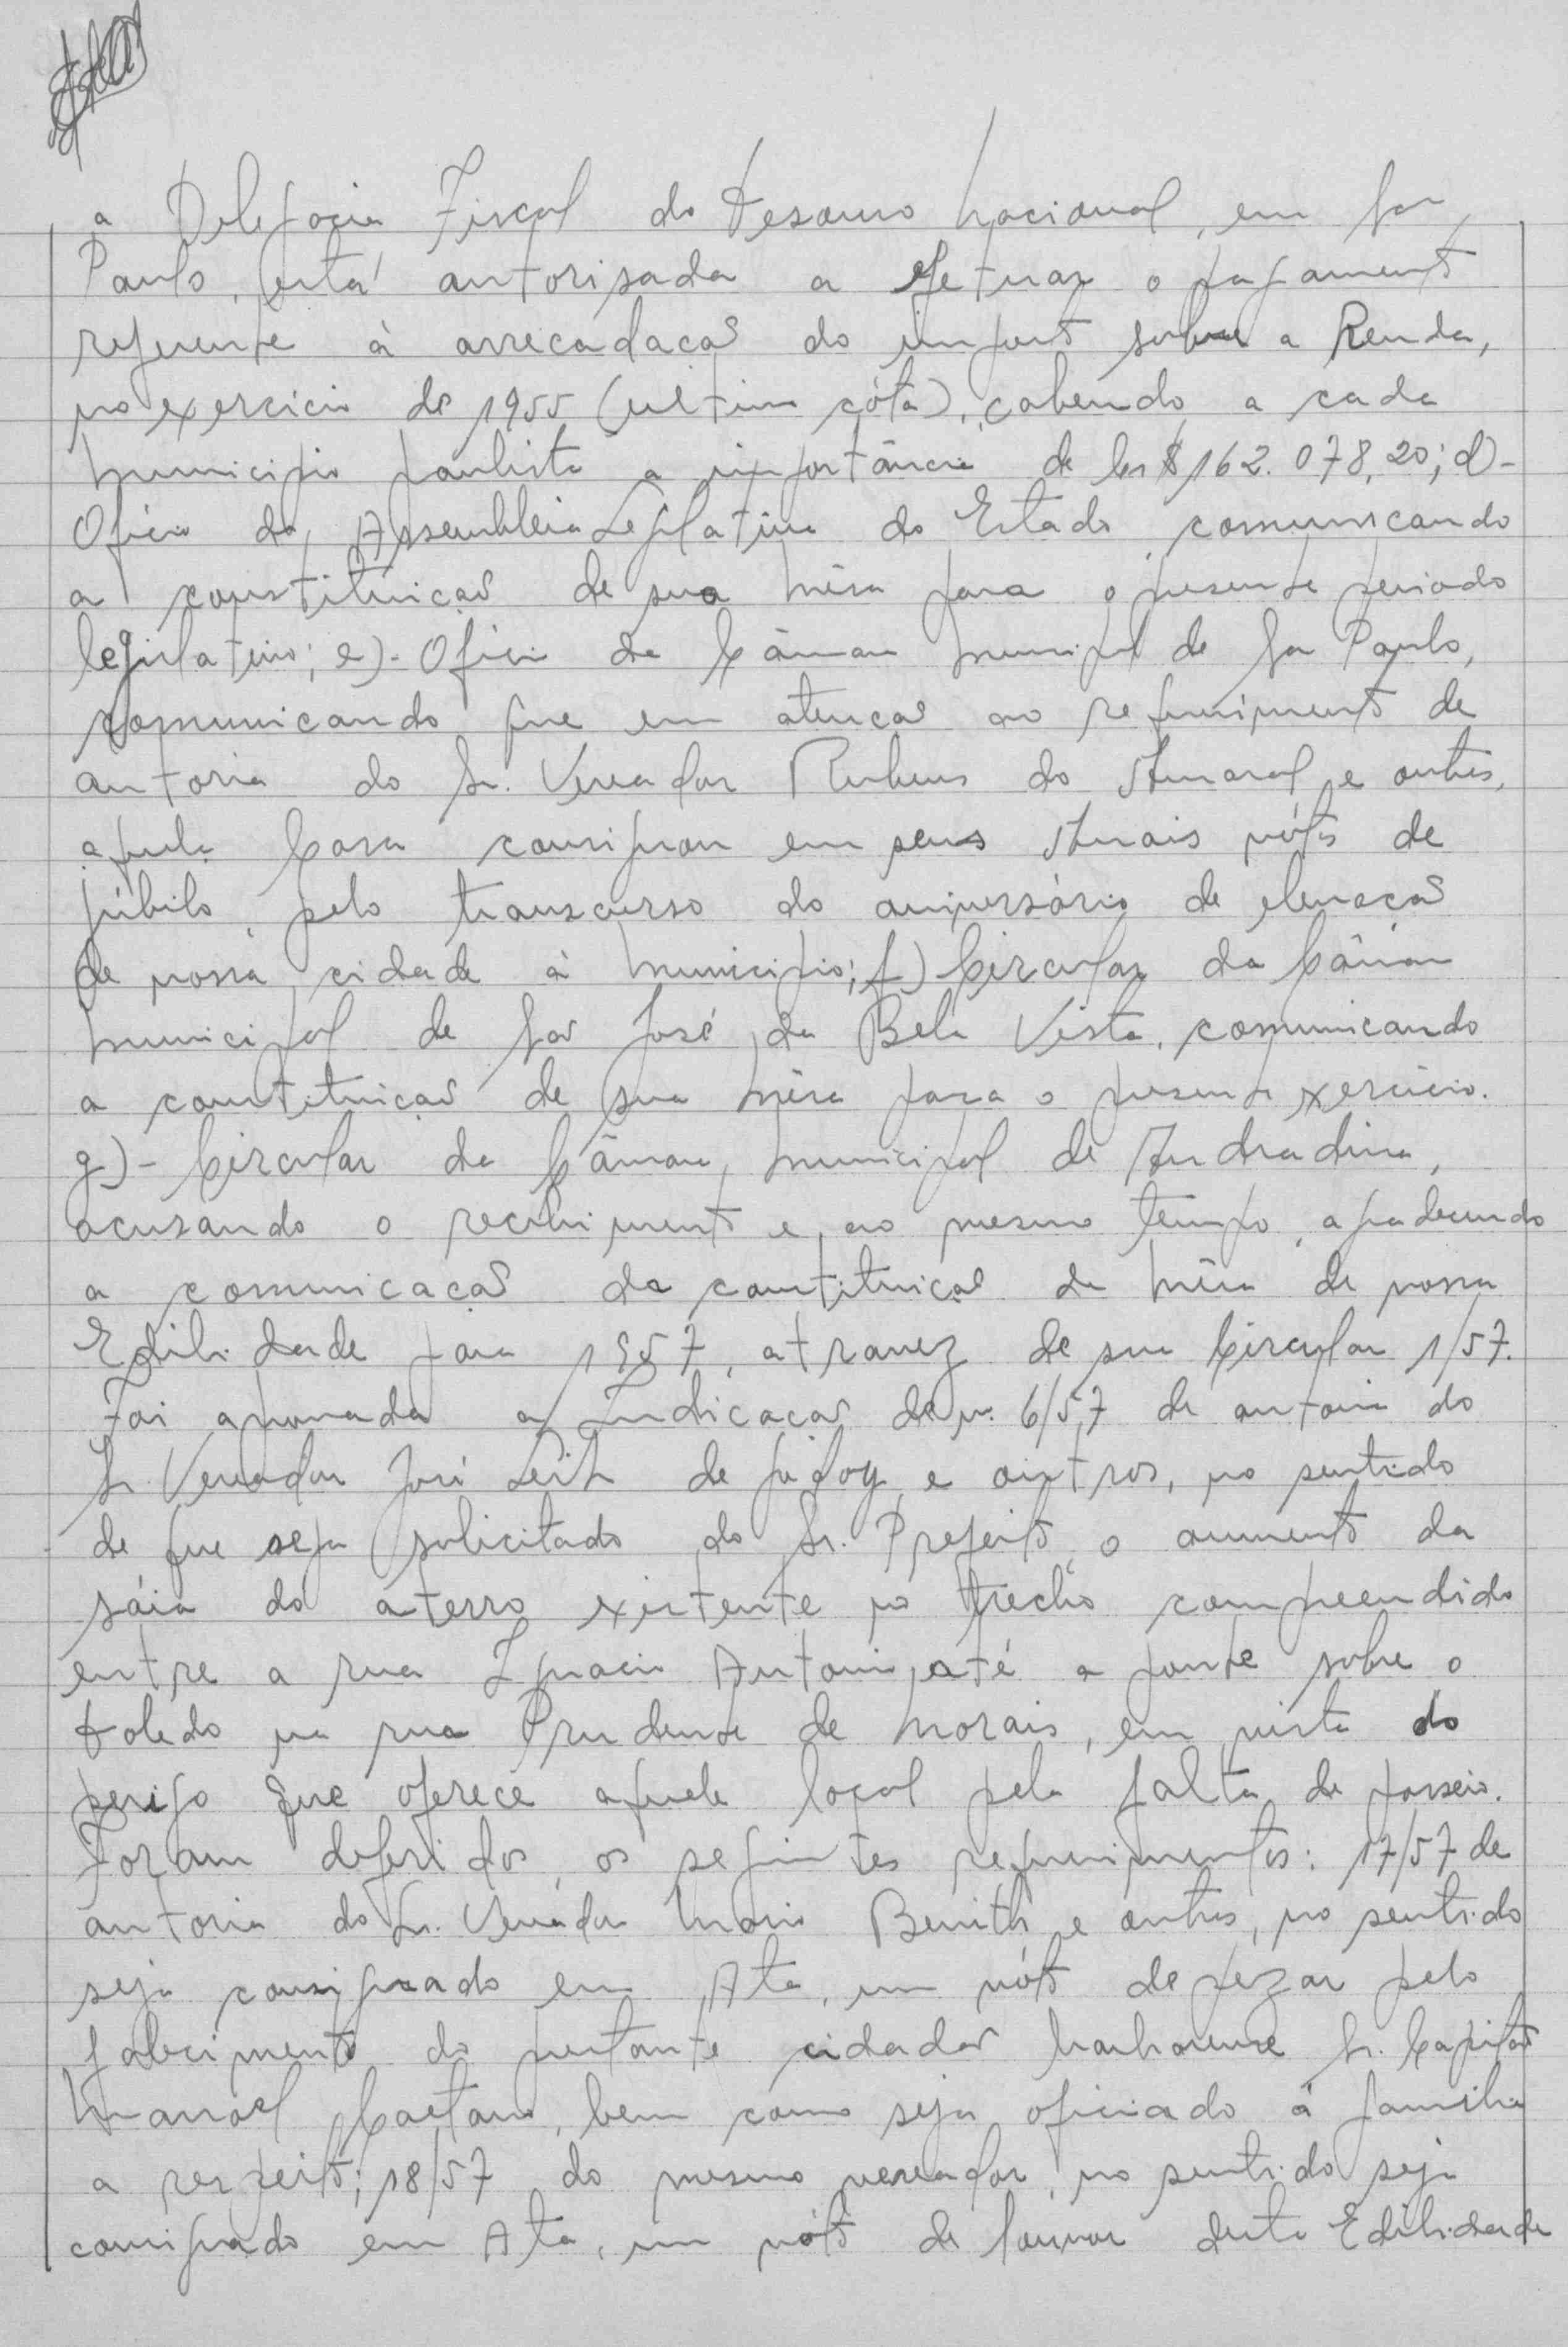 a Delegacia Fiscal do Tesouro Nacional, em São
Paulo, está autorisada a efetuar o pagamento
referente à arrecadação do imposto sobre a Renda,
no exercicio de 1955 (ultima cóta), cabendo a cada
Municipio paulista a importância de Cr$ 162.078,20; d)-
Oficio da Assembleia Legislativa do Estado comunicando
a constituição de sua Mêsa para o presente periodo
legislativo; e)- Oficio da Câmara Municipal de São Paulo,
comunicando que em atenção ao requerimento de
autoria do Sr. Vereador Rubens do Amaral e outros,
aquela Casa consignou em seus Anais vóto de
júbilo, pelo transcurso do aniversário de elevação
de nossa cidade à Municipio; f) Circular da Câmara
Municipal de São José da Bela Vista, comunicando
a constituição de sua Mêsa para o presente exercicio.
g)- Circular da Câmara Municipal de Andradina,
acusando o recebimento e, ao mesmo tempo, agradecendo
a comunicação da constituição da Mêsa de nossa
Edilidade para 1957, atravez de sua Circular 1/57.
Foi aprovada a Indicação de n. 6/57 de autoria do
Sr. Vereador José Leite de Godoy e outros, no sentido
de que seja solicitado do Sr. Prefeito, o aumento da
sáia do aterro existente no trecho compreendido
entre a rua Ignacio Antonio, até a ponte sobre o
Toledo na rua Prudente de Morais, em vista do
perigo que oferece aquele local pela falta de passeio.
Foram deferidos, os seguintes requerimentos: 17/57 de
autoria do Sr. Vereador Mario e outros, no sentido
seja consignado em Ata, um vóto de pezar pelo
falecimento do prestante cidadão Sr. Capitão
Manoel Caetano, bem como seja oficiado à familia
a respeito; 18/57 do mesmo vereador, no sentido seja
consignado em Ata, um vóto de louvor desta Edilidade